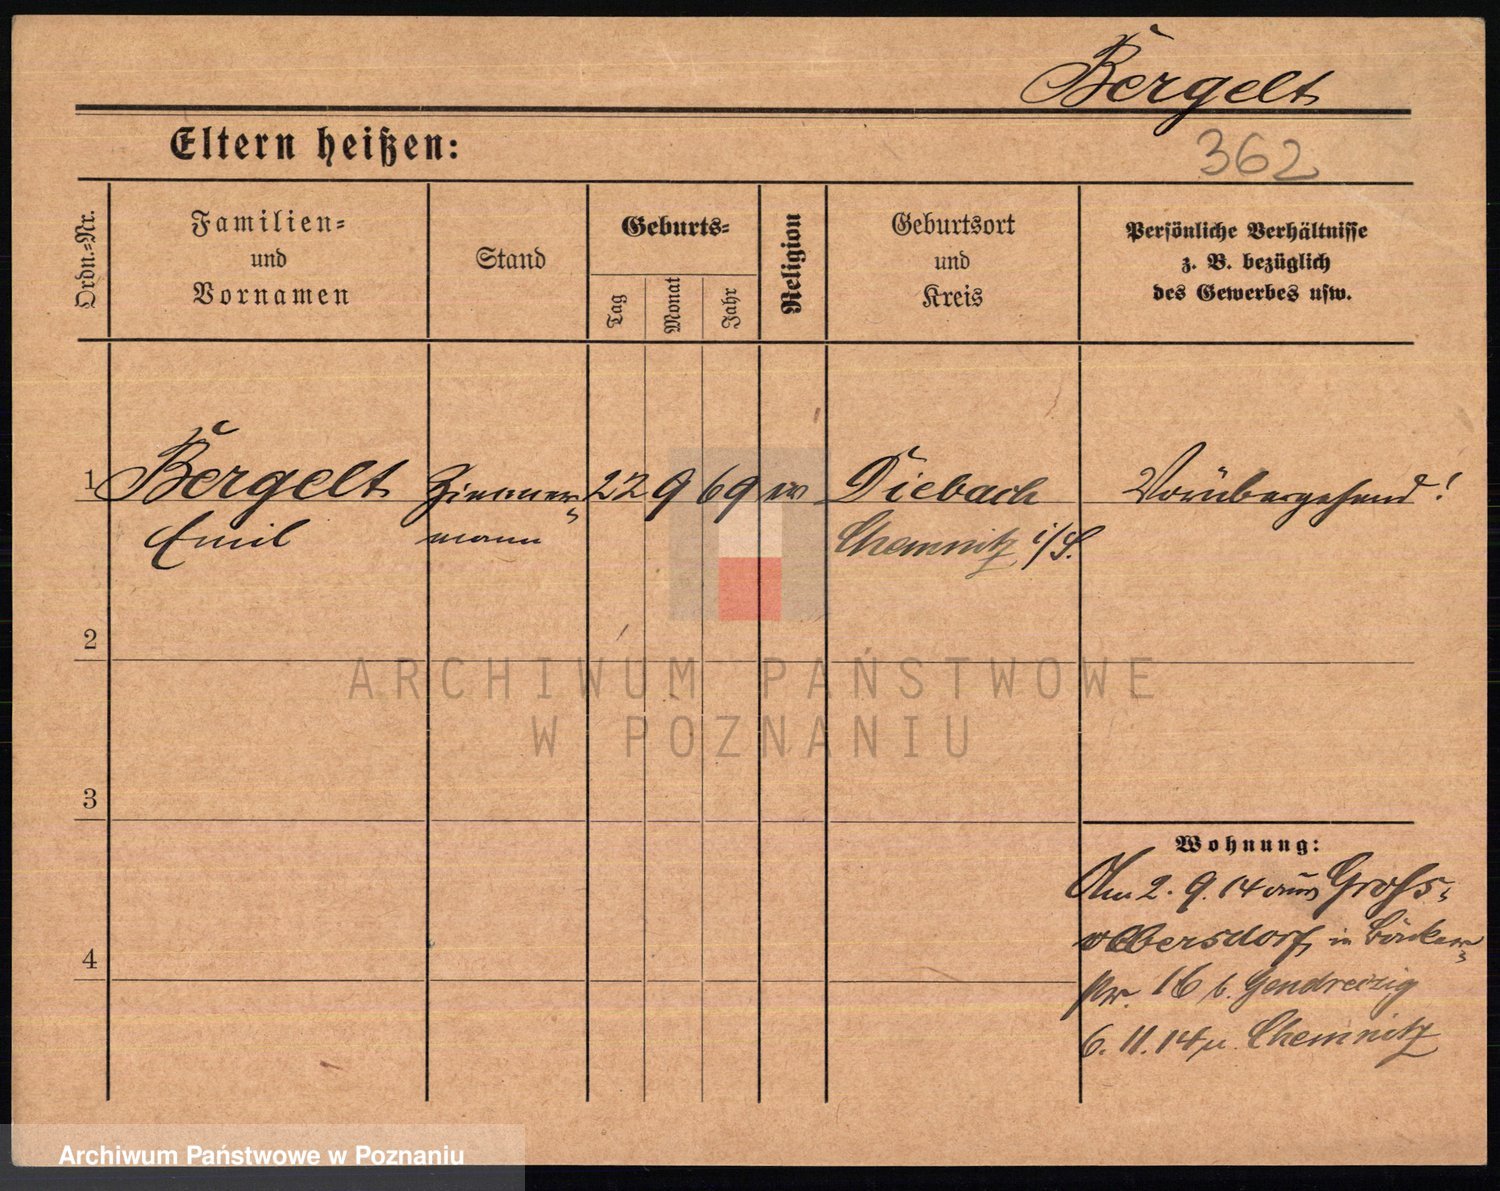 Bergelt
Eltern heißen:
362
Ordn.-Nr.
Familien-
und
Vornamen
Stand
Geburts-
Tag
Monat
Jahr
Religion
Geburtsort
und
Kreis
Persönliche Verhältnisse
z. B. bezüglich
des Gewerbes usw.
1 Bergelt Zimmer- 22 9 69 ev Diebach Vorübergehend!
Emil mann Chemnitz i/S.
2
ARCHIWUM PAŃSTWOWE
W POZNANIU
3
Wohnung:
Am 2. 9. 14 aus Groß-
olbersdorf, in Bäcker-
4
str. 16 b. Gendreizig
6. 11. 14 n. Chemnitz
Archiwum Państwowe w Poznaniu